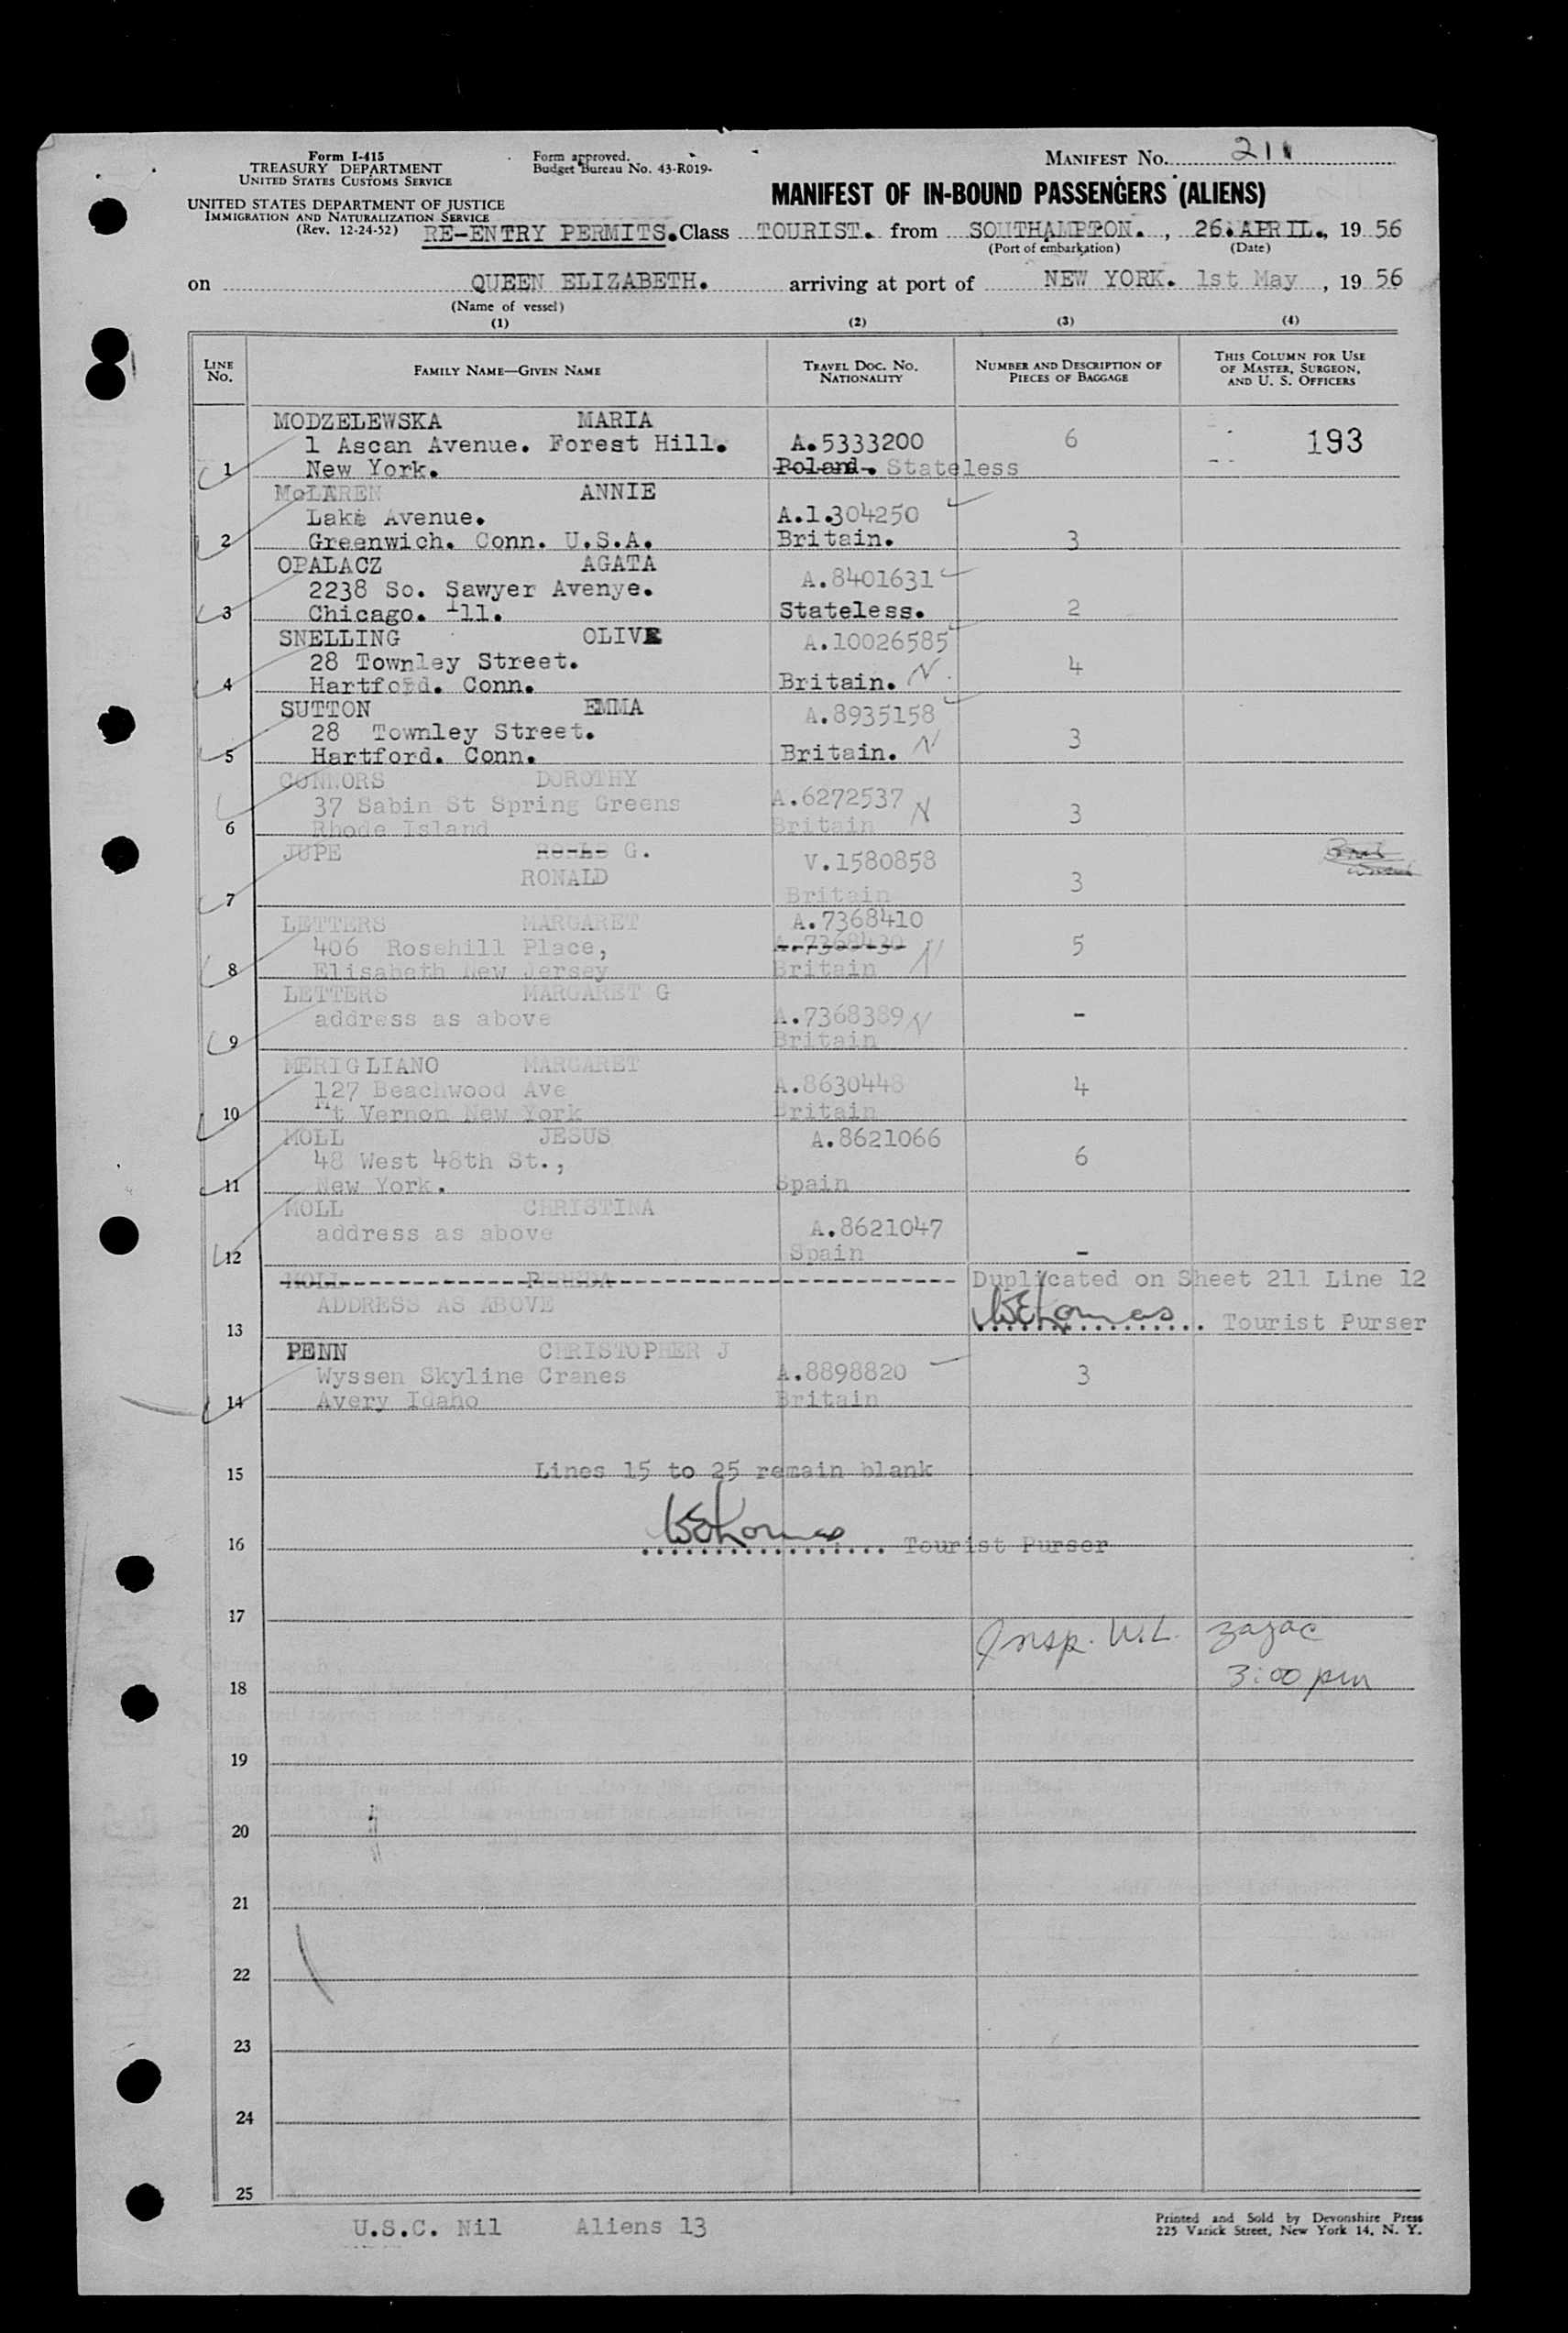 Form I-415
TREASURY DEPARTMENT
UNITED STATES CUSTOMS SERVICE
Form approved.
Budget Bureau No. 43-R019-
MANIFEST No. 211
UNITED STATES DEPARTMENT OF JUSTICE
IMMIGRATION AND NATURALIZATION SERVICE
(Rev. 12-24-52)
MANIFEST OF IN-BOUND PASSENGERS (ALIENS)
RE-ENTRY PERMITS. Class TOURIST. from SOUTHAMPTON. , 26. APRIL. , 19 56
(Port of embarkation) (Date)
on QUEEN ELIZABETH. arriving at port of NEW YORK. 1st May , 19 56
(Name of vessel)
(1) (2) (3) (4)
LINE No.
FAMILY NAME—GIVEN NAME
TRAVEL DOC. NO. NATIONALITY
NUMBER AND DESCRIPTION OF PIECES OF BAGGAGE
THIS COLUMN FOR USE OF MASTER, SURGEON, AND U. S. OFFICERS
MODZELEWSKA MARIA
1 Ascan Avenue. Forest Hill. A.5333200 6 193
1 New York. Poland. Stateless
McLAREN ANNIE
Lake Avenue. A.1.304250
2 Greenwich. Conn. U.S.A. Britain. 3
OPALACZ AGATA
2238 So. Sawyer Avenye. A.8401631
3 Chicago. Ill. Stateless. 2
SNELLING OLIVE A.10026585
28 Townley Street. 4
4 Hartford. Conn. Britain. N
SUTTON EMMA A.8935158
28 Townley Street. 3
5 Hartford. Conn. Britain. N
CONNORS DOROTHY
37 Sabin St Spring Greens A.6272537 N 3
6 Rhode Island Britain
JUPE G. V.1580858
RONALD 3
7 Britain
LETTERS MARGARET A.7368410
406 Rosehill Place, A.7368430 N 5
8 Elisabeth New Jersey Britain
LETTERS MARGARET G
address as above A.7368389 N -
9 Britain
MERIGLIANO MARGARET
127 Beachwood Ave A.8630448 4
10 Mt Vernon New York Britain
MOLL JESUS A.8621066
48 West 48th St., 6
11 New York. Spain
MOLL CHRISTINA
address as above A.8621047
12 Spain -
MOLL Duplicated on Sheet 211 Line 12
ADDRESS AS ABOVE
13 WEThomas Tourist Purser
PENN CHRISTOPHER J
Wyssen Skyline Cranes A.8898820 3
14 Avery Idaho Britain
15 Lines 15 to 25 remain blank
16 WEThomas Tourist Purser
17
Insp. W.L. Zajac
18 3:00 pm
19
20
21
22
23
24
25
U.S.C. Nil Aliens 13
Printed and Sold by Devonshire Press
225 Varick Street, New York 14, N. Y.